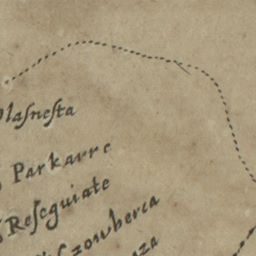 laſneſta
Parkarre
Reſeguiate
Czowberea
za